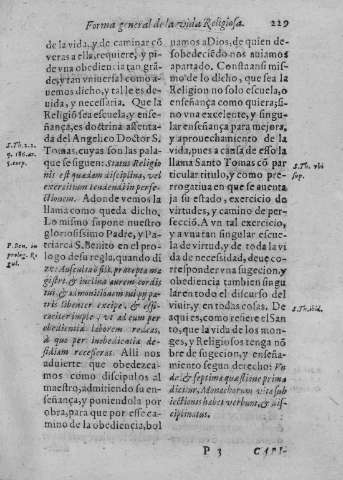 Forma general de la vida Religiosa. 229
de la vida, y de caminar cõ
veras a ella, requiere, y pi-
de vna obediencia tan grã-
de, y tan vniuersal como a-
uemos dicho, y tal le es de-
uida, y necessaria. Que la
Religiõ sea escuela, y ense-
ñança, es doctrina assenta-
da del Angelico Doctor S.
Tomas, cuyas son las pala-
que se siguen: Status Religio
nis est quædam disciplina, vel
exercitium tendendi in perfe-
ctionem. Adonde vemos la
llama como queda dicho.
Lo mismo supone nuestro
gloriosissimo Padre, y Pa-
triarca S. Benito en el pro-
logo de su regla, quando di
ze: Ausculta ò fili præcepta ma
gistri, & inclina aurem cordis
tui, & admonitionem pij pa-
tris libenter excipe, & effi-
caciter imple, vt ad eum per
obedientiæ laborem redeas,
à quo per inobedientiæ de-
sidiam recesseras. Alli nos
aduierte que obedezca-
mos como discipulos al
maestro, admitiendo su en-
señança, y poniendola por
obra, para que por esse ca-
mino de la obediencia, bol
S. Th. 2. 2.
q. 186. ar.
P. Ben. in
prolog. Re
gul.
uamos a Dios, de quien de-
sobedeciẽdo nos auiamos
apartado. Consta assi mis-
mo de lo dicho, que sea la
Religion no solo escuela, o
enseñança como quiera; si-
no vna excelente, y singu-
lar enseñança para mejora,
y aprouechamiento de la
vida, pues a causa de esso la
llama Santo Tomas cõ par
ticular titulo, y como pre-
rrogatiua en que se auenta
ja su estado, exercicio do
virtudes, y camino de per-
fecciõ. A vn tal exercicio,
y a vna tan singular escue-
la de virtud, y de toda la vi
da de necessidad, deue co-
rresponder vna sugecion, y
obediencia tambien singu
lar en todo el discurso del
viuir, y en todas cosas. De
aqui es, como refiere el San
to, que la vida de los mon-
ges, y Religiosos tenga nõ
bre de sugecion, y enseña-
miento segun derecho: Vn
de & septima quæstione prima
dicitur, Monachorum vita sub
iectionis habet verbum, & di-
scipinatus.
S. Th. vbi
sup.
S. Th. ibid.
P 3 CAPI-